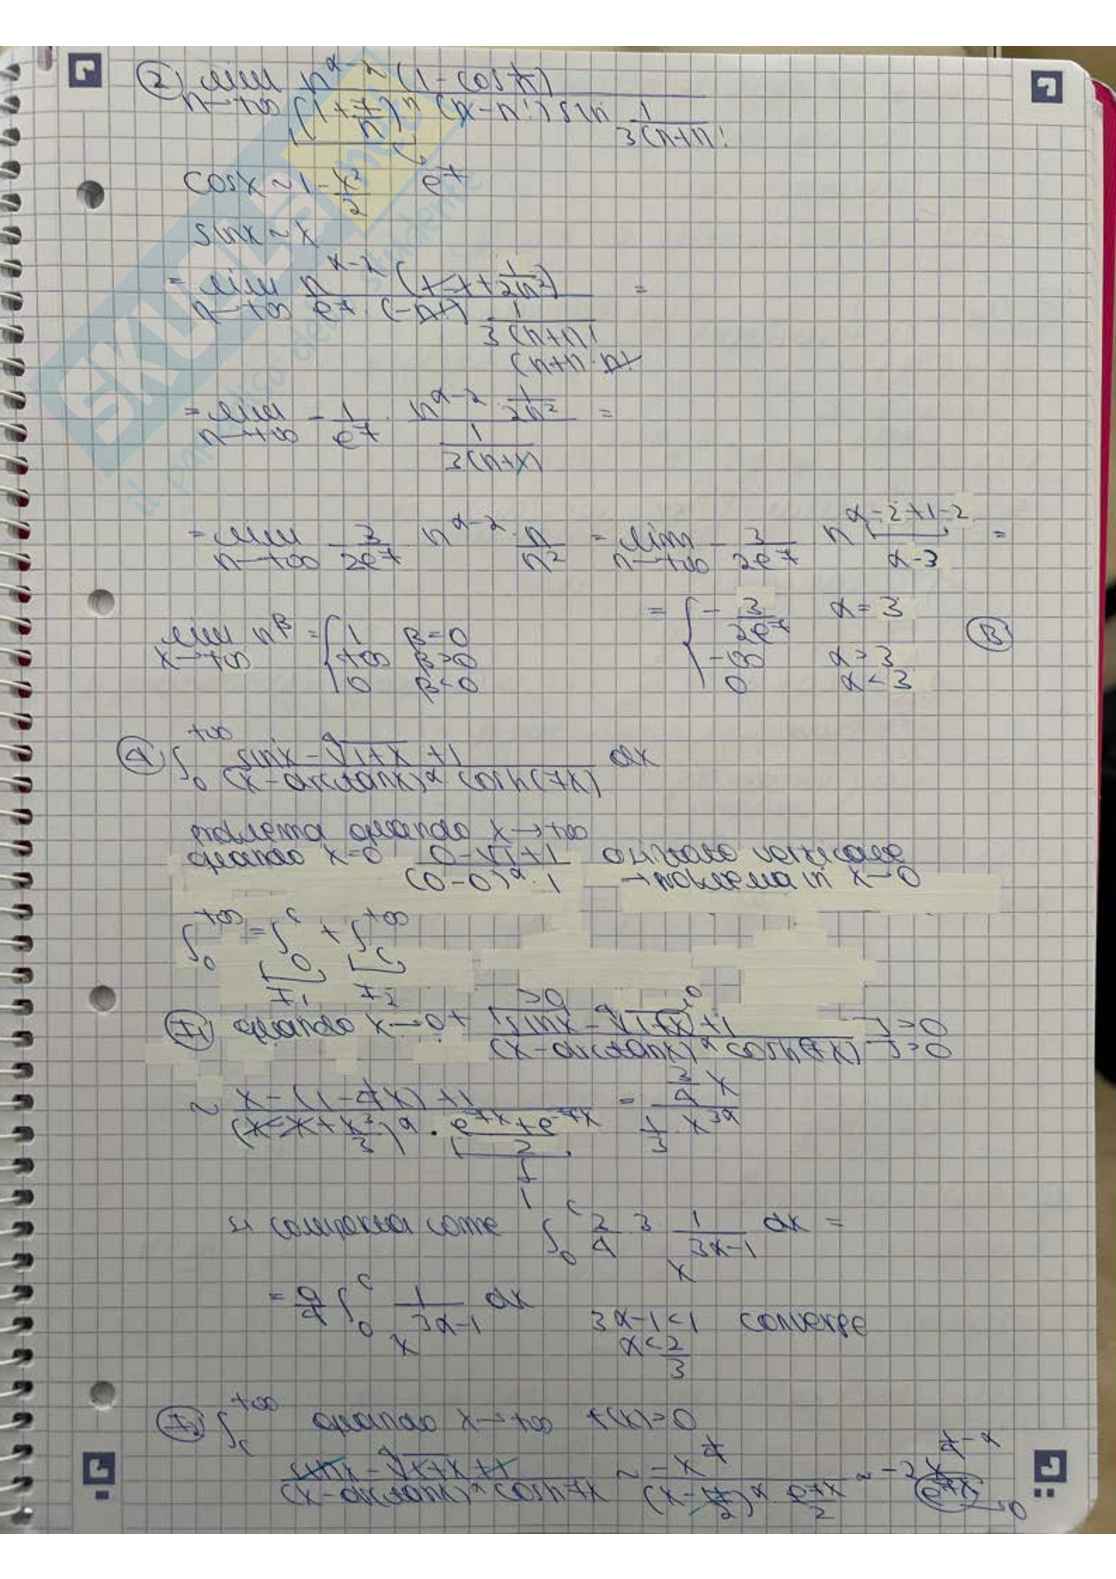 ② lim n→+∞ n^(α-2) (1-cos 1/n) / (1+7/n)^n (n-n!) sin 1/3(n+n!
e^7
cos x ~ 1 - x²/2
sin x ~ x
= lim n→+∞ n^(α-2) (1-1+1/2n²) / e^7 (-n!) 1/3(n+n! =
(n+n·n!
= lim n→+∞ - 1/e^7 · n^(α-2) · 1/2n² / 1/3(n+1) =
= lim n→+∞ - 3/2e^7 n^(α-2) · n/n² = lim n→+∞ - 3/2e^7 n^(α-2+1-2) =
α-3
lim x→+∞ n^β = { 1 β=0
+∞ β>0
0 β<0
= { - 3/2e^7 α=3
-∞ α>3
0 α<3
Ⓑ
④ ∫₀^+∞ sin x - ⁴√1+x + 1 / (x-arctan x)^α cosh(7x) dx
problema quando x→+∞
quando x=0 0-√1+1 / (0-0)^α · 1 asintoto verticale
→ problema in x→0
∫₀^+∞ = ∫₀^c + ∫_c^+∞
I₁ I₂
I₁ quando x→0+ sin x - ⁴√1+x + 1 / (x-arctan x)^α cosh(7x) → >0 → >0
~ x-(1-4x)+1 / (x-x+x³/3)^α · e^7x+e^-7x / 2 = 3/4 x / 1/3 x^3α
1
si comporta come ∫₀^c 3/4 3 1/x^(3α-1) dx =
= 9/4 ∫₀^c 1/x^(3α-1) dx 3α-1<1 converge
α<2/3
I₂ ∫_c^+∞ quando x→+∞ f(x)>0
sin x - ⁴√1+x + 1 / (x-arctan x)^α cosh 7x